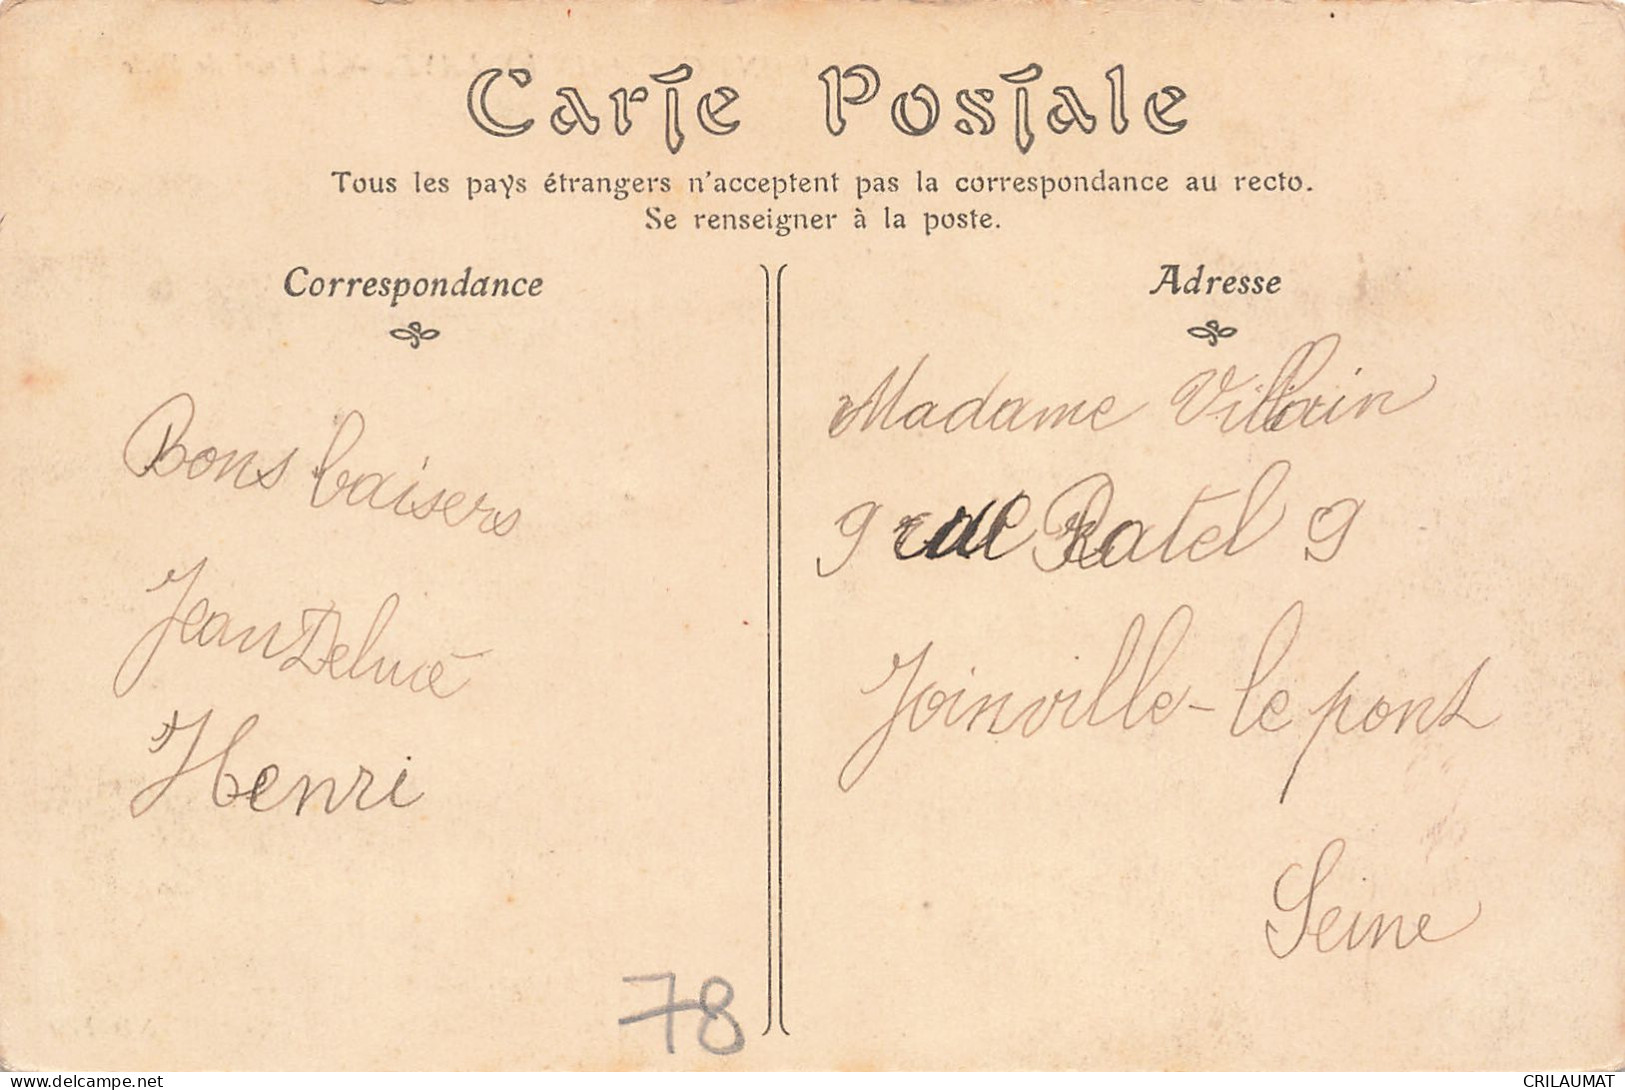 Carte Postale
Tous les pays étrangers n'acceptent pas la correspondance au recto.
Se renseigner à la poste.
Correspondance
Bons baisers
Jean
Henri
78
Adresse
Madame Villain
9 rue Ratel 9
Joinville-le pont
Seine
delcampe.net
CRILAUMAT